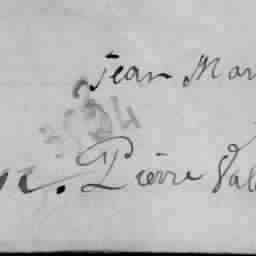 Jean Mar
3524
Pierre Val